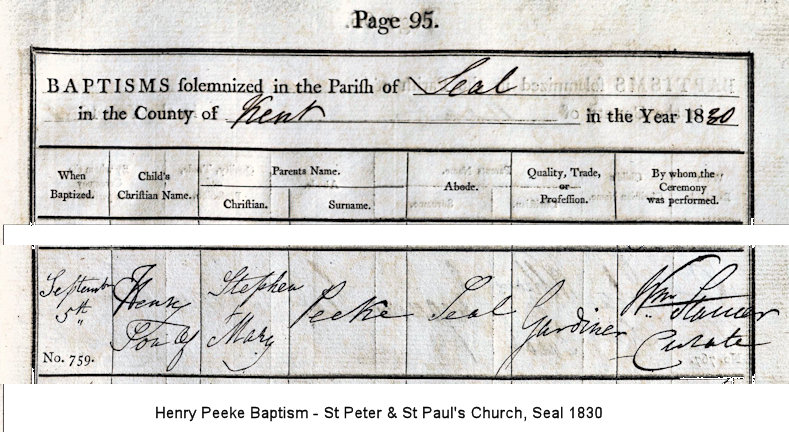 Page 95.
BAPTISMS solemnized in the Parish of Seal
in the County of Kent in the Year 1830
When Baptized.
Child's Christian Name.
Parents Name.
Christian.
Surname.
Abode.
Quality, Trade, or Profession.
By whom the Ceremony was performed.
Septembr 5th
No. 759.
Henry Son of
Stephen & Mary
Peeke
Seal
Gardiner
Wm Curate
Henry Peeke Baptism - St Peter & St Paul's Church, Seal 1830